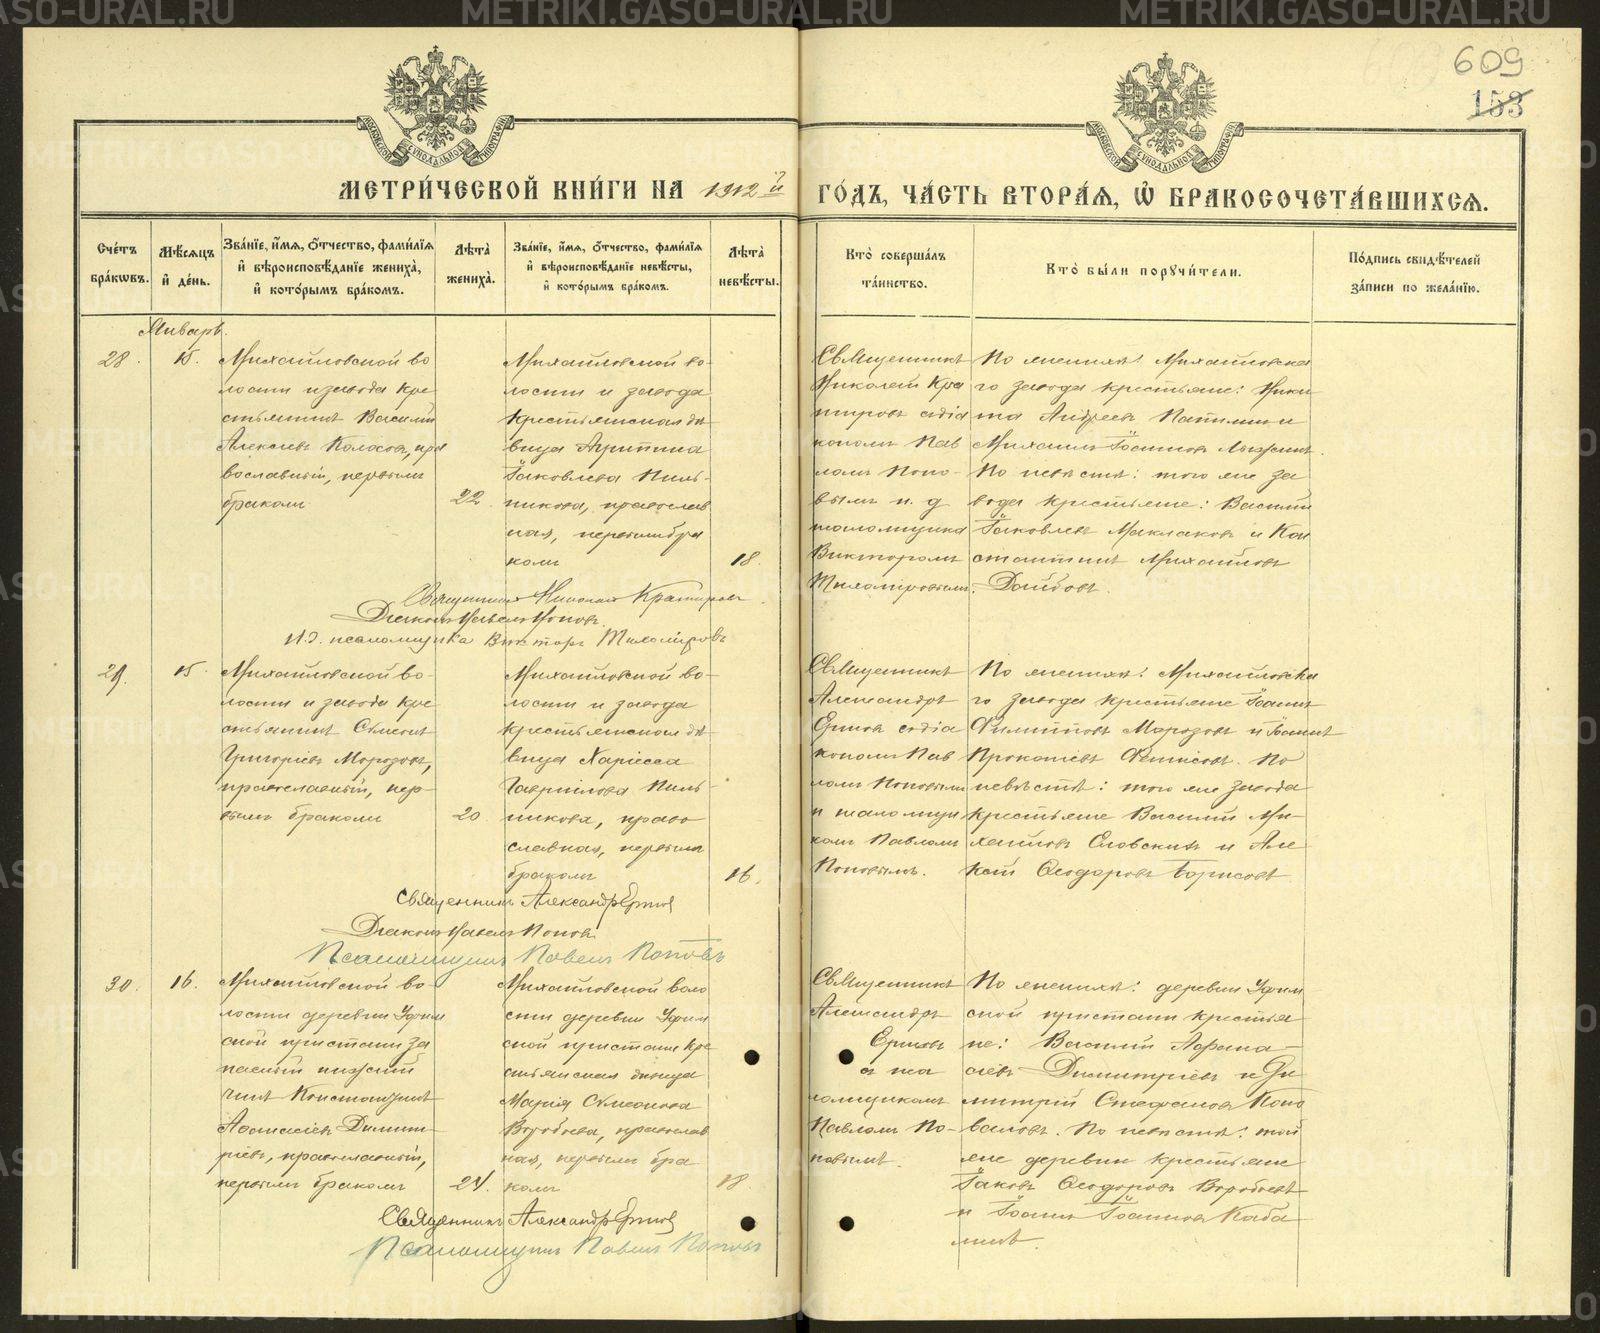 609
153
МОСКОВСКОЙ СУНОДАЛЬНОЙ ТИПОГРАФІИ
МОСКОВСКОЙ СУНОДАЛЬНОЙ ТИПОГРАФІИ
МЕТРИ́ЧЕСКОЙ КНИ́ГИ НА 1912й ГО́ДЪ, ЧА́СТЬ ВТОРА́Я, Ѡ БРАКОСОЧЕТА́ВШИХСЯ.
Сче́тъ бра́кѡвъ.
Мѣ́сяцъ и҆ де́нь.
Зва́нїе, и҆́мя, ѻ҆́тчество, фами́лїя
и҆ вѣроисповѣ́данїе жениха̀,
и҆ кото́рымъ бра́комъ.
Лѣта̀ жениха̀.
Зва́нїе, и҆́мя, ѻ҆́тчество, фами́лїя
и҆ вѣроисповѣ́данїе невѣ́сты,
и҆ кото́рымъ бра́комъ.
Лѣта̀ невѣ́сты.
Кто̀ соверша́лъ
та́инство.
Кто̀ бы́ли порꙋчи́тели.
По́дпись свидѣ́телей
за́писи по жела́нїю.
Январь.
28.
15.
Михайловской во
лости и завода кре
стьянинъ Василій
Алексіевъ Колосовъ, пра
вославный, первымъ
бракомъ
22
Михайловской во-
лости и завода
крестьянская дѣ
вица Агрипина
Іаковлева Пиль-
никова, православ
ная, первымъ бра
комъ
18.
Священникъ
Николай Кра
тировъ съ діа
кономъ Пав
ломъ Попо-
вымъ и. д.
псаломщика
Викторомъ
Тихоміровымъ.
По женихѣ: Михайловска
го завода крестьяне: Ники
та Андреевъ и
Михаилъ Іоанновъ
По невѣстѣ: того же за
вода крестьяне: Василій
Іаковлевъ Маклаковъ и Кон
стантинъ Михайловъ
Священникъ Николай Кратировъ
Діаконъ Павелъ Поповъ.
И.д. псаломщика Викторъ Тихоміровъ
29.
15.
Михайловской во-
лости и завода кре
стьянинъ Сѵмеонъ
Григоріевъ Морозовъ,
православный, пер-
вымъ бракомъ
20
Михайловской во-
лости и завода
крестьянская дѣ
вица Харіесса
Гавриілова Пиль-
никова, право
славная, первымъ
бракомъ
16.
Священникъ
Александръ
Ершовъ съ діа
кономъ Пав
ломъ Поповымъ
и псаломщи
комъ Павломъ
Поповымъ.
По женихѣ: Михайловска
го завода крестьяне Іоаннъ
Филипповъ Морозовъ и Іоаннъ
Прокопіевъ По
невѣстѣ: того же завода
крестьяне Василій Ми-
хайловъ и Але
ксій Ѳеодоровъ Борисовъ
Священникъ Александръ Ершовъ
Діаконъ Павелъ Поповъ
Псаломщикъ Павелъ Поповъ
30.
16.
Михайловской во-
лости деревни Уфим
ской пристани за
пасный нижній
чинъ Константинъ
Димит-
ріевъ, православный,
первымъ бракомъ
24.
Михайловской воло
сти деревни Уфим
ской пристани кре
стьянская дѣвица
Марія Сѵмеонова
Воробьева, православ
ная, первымъ бра
комъ
18.
Священникъ
Александръ
Ершовъ
съ пса
ломщикомъ
Павломъ По-
повымъ.
По женихѣ: деревни Уфим
ской пристани крестья
не: Василій Афана-
сіевъ Димитріевъ и Ди
митрій Стефановъ Коно
валовъ. По невѣстѣ: той
же деревни крестьяне
Іаковъ Ѳеодоровъ Воробьевъ
и Іоаннъ Іоанновъ Каба
нинъ.
Священникъ Александръ Ершовъ
Псаломщикъ Павелъ Поповъ
METRIKI.GASO-URAL.RU